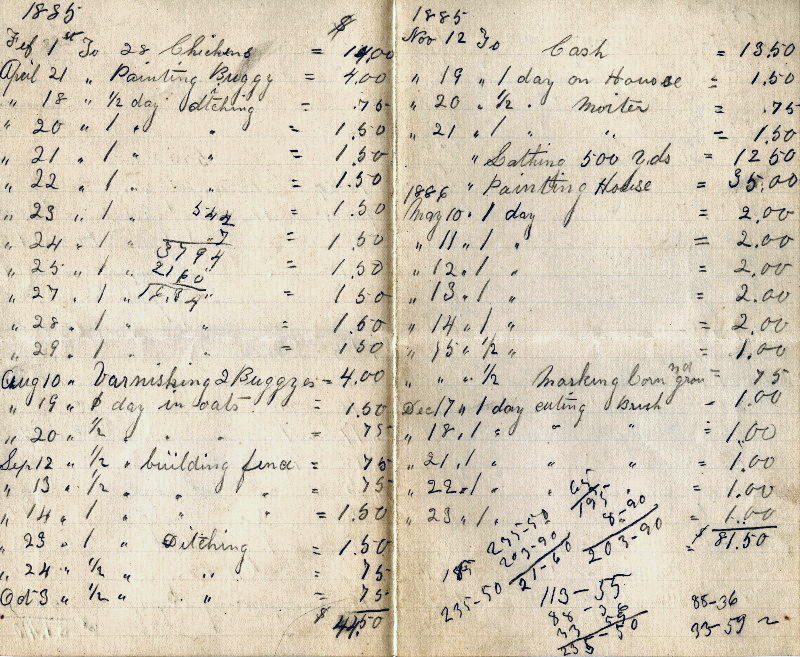 1885 $
Feb 1st To 28 Chickens = 14.00
April 21 " Painting Buggy = 4.00
" 18 " 1/2 day ditching = .75
" 20 " 1 " " = 1.50
" 21 " 1 " " = 1.50
" 22 " 1 " = 1.50
" 23 " 1 " = 1.50
" 24 " 1 " = 1.50
" 25 " 1 " = 1.50
" 27 " 1 " " = 1.50
" 28 " 1 " " = 1.50
" 29 " 1 " " = 1.50
542
7
3794
2160
Aug 10 " Varnishing 2 Buggyes = 4.00
" 19 " 1 day in oats = 1.50
" 20 " 1/2 " " = 75
Sep 12 " 1/2 " building fence = 75
" 13 " 1/2 " " " = 75
" 14 " 1 " " " = 1.50
" 23 " 1 " Ditching = 1.50
" 24 " 1/2 " " = 75
Oct 3 " 1/2 " " = 75
$ 44.50
1885
Nov 12 To Cash = 13.50
" 19 " 1 day on House = 1.50
" 20 " 1/2 " Morter = .75
" 21 " 1 " " = 1.50
" Lathing 500 yds = 12 50
" Painting House = 35.00
1886
May 10 " 1 day = 2.00
" 11 " 1 " = 2.00
" 12 " 1 " = 2.00
" 13 " 1 " = 2.00
" 14 " 1 " = 2.00
" 15 " 1/2 " = 1.00
" " " 1/2 Marking Corn = 75
Dec 17 " 1 day cuting Brush = 1.00
" 18 " 1 " " " = 1.00
" 21 " 1 " " " = 1.00
" 22 " 1 " " = 1.00
" 23 " 1 " = 1.00
= $ 81.50
65
195
8-90
203-90
235-50
203-90
21-60
185
235-50
113-55
88-36
33 59
235-50
88-36
33-59